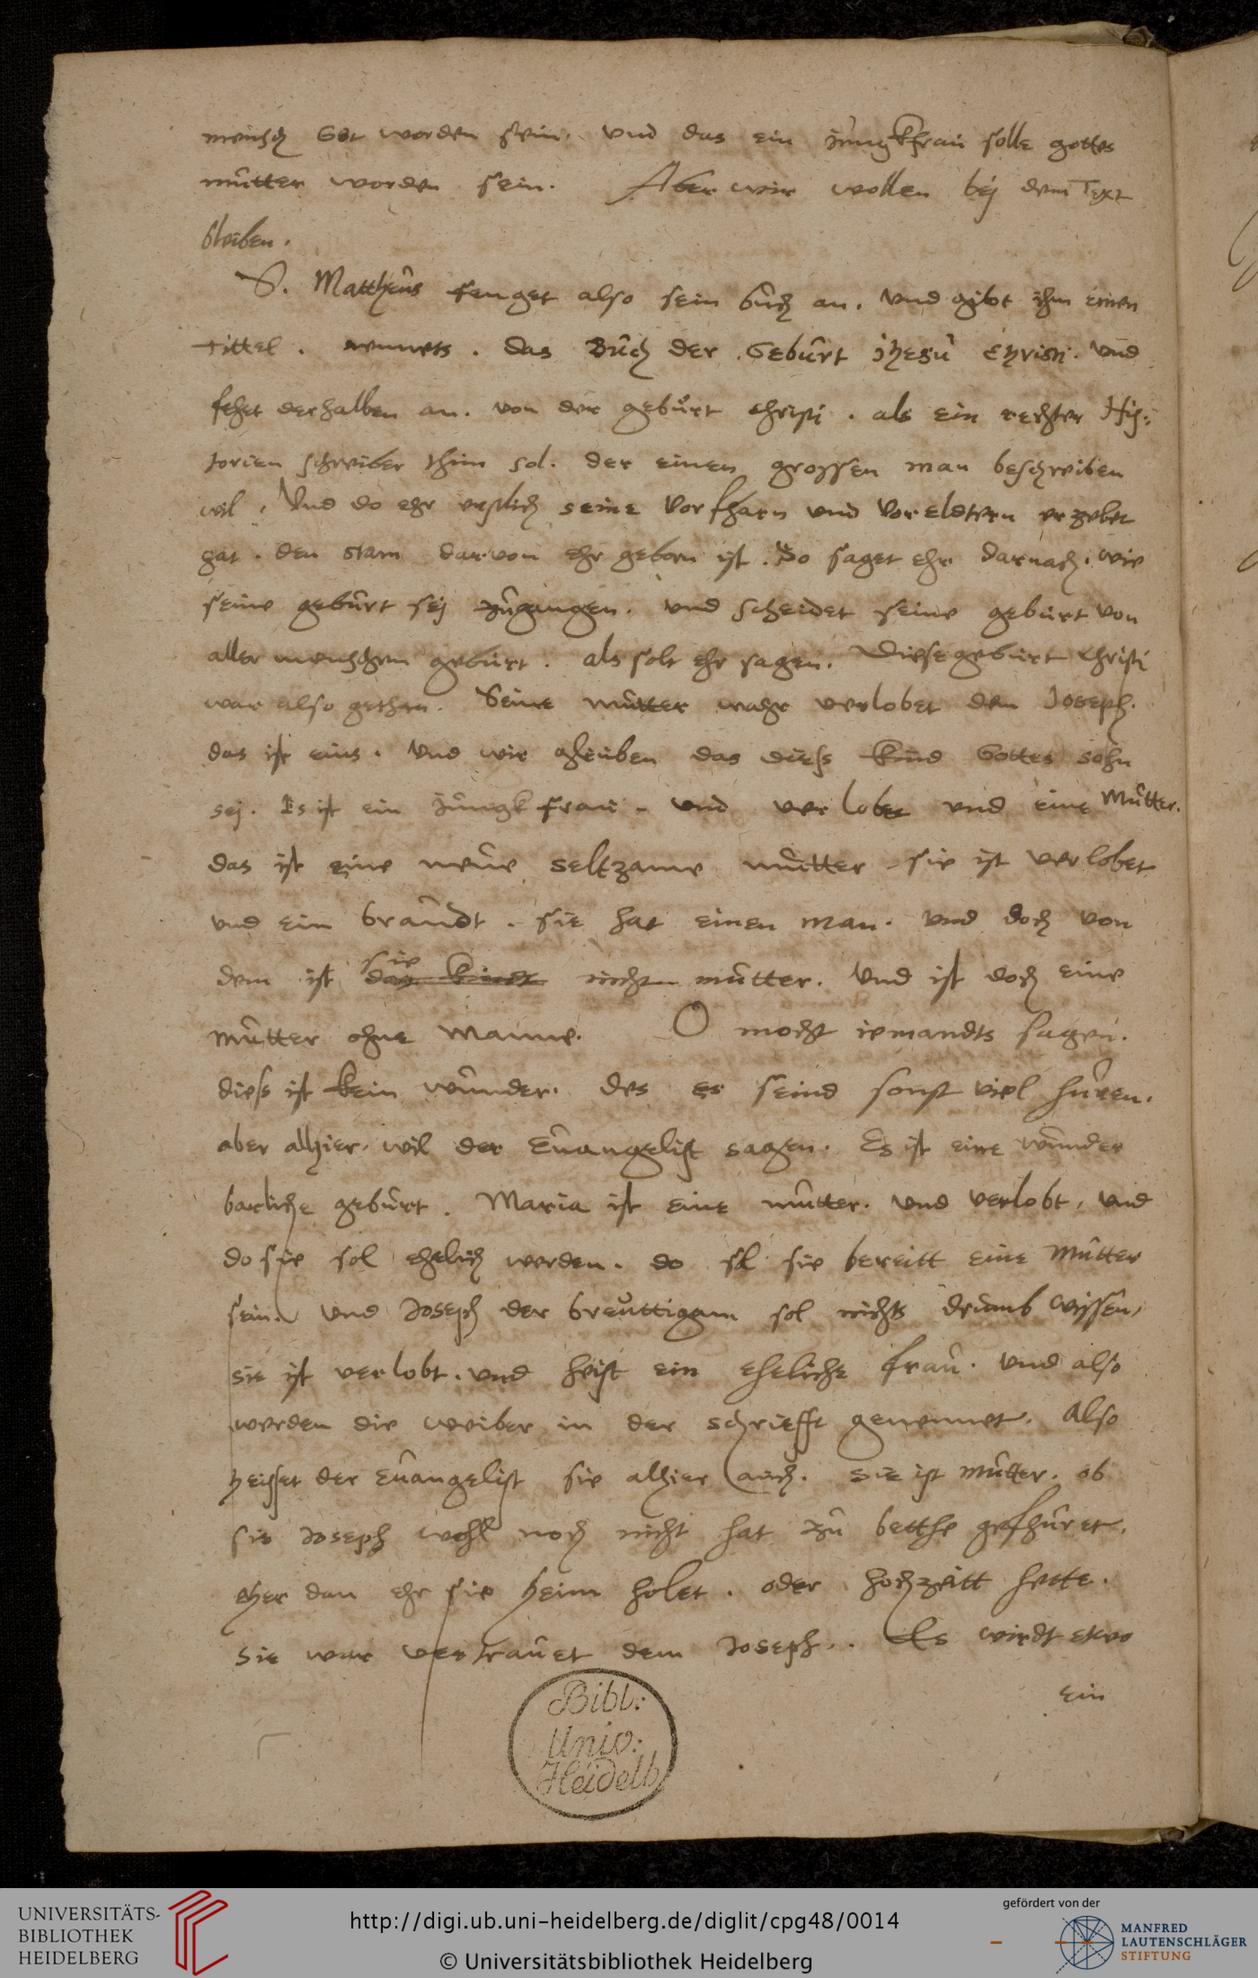 mensch Got worden sein. und das ein jungkfrau solle gottes
mutter worden sein. Aber wir wollen bej dem Text
bleiben.
S. Mattheus fenget also sein buch an. und gibt ihm einen
tittel. nennets. das Buch der Geburt Jhesu Christi. und
fehet derhalben an. von der geburt christi. als ein rechter His:
torien schreiber thun sol. der einen grossen man beschreiben
wil. Und do ehr erstlich seine Vorfharn und Voreldtern erzelet
hat. den stam darvon ehr geborn ist. So saget ehr darnach. wie
seine geburt sej zugangen. und scheidet seine geburt von
aller menschen geburt. als solt ehr sagen. Diese geburt Christi
war also gethan. Seine mutter wahr verlobet dem Joseph.
das ist eins. Und wir gleuben das diess kind Gottes sohn
sej. Es ist ein jungkfrau. und verlobet und eine Mutter.
das ist eine neue seltzame mutter sie ist verlobet
und ein braudt. sie hat einen man. und doch von
dem ist sie nicht mutter. Und ist doch eine
mutter ohne Manne. O mocht iemandts sagen.
diess ist kein wunder. des es seind sonst viel huren.
aber alhier wil der Euangelist sagen. Es ist eine wunder
barliche geburt. Maria ist eine mutter. und verlobt, und
do sie sol ehelich werden. do sol sie bereitt eine Mutter
sein. und Joseph der breuttigam sol nichts drumb wissen,
sie ist verlobt. und heist ein eheliche frau. und also
werden die weiber in der schriefft genennet. Also
heisset der Euangelist sie alhier auch. Sie ist mutter. ob
sie Joseph wohl noch nicht hat zu betthe gefhuret.
eher dan ehr sie heim holet. oder hochzeitt hette.
sie war vertrauet dem Joseph. Es wirdt etwo
ein
Bibl:
Univ:
Heidelb
UNIVERSITÄTS-
BIBLIOTHEK
HEIDELBERG
http://digi.ub.uni-heidelberg.de/diglit/cpg48/0014
© Universitätsbibliothek Heidelberg
gefördert von der
MANFRED
LAUTENSCHLÄGER
STIFTUNG